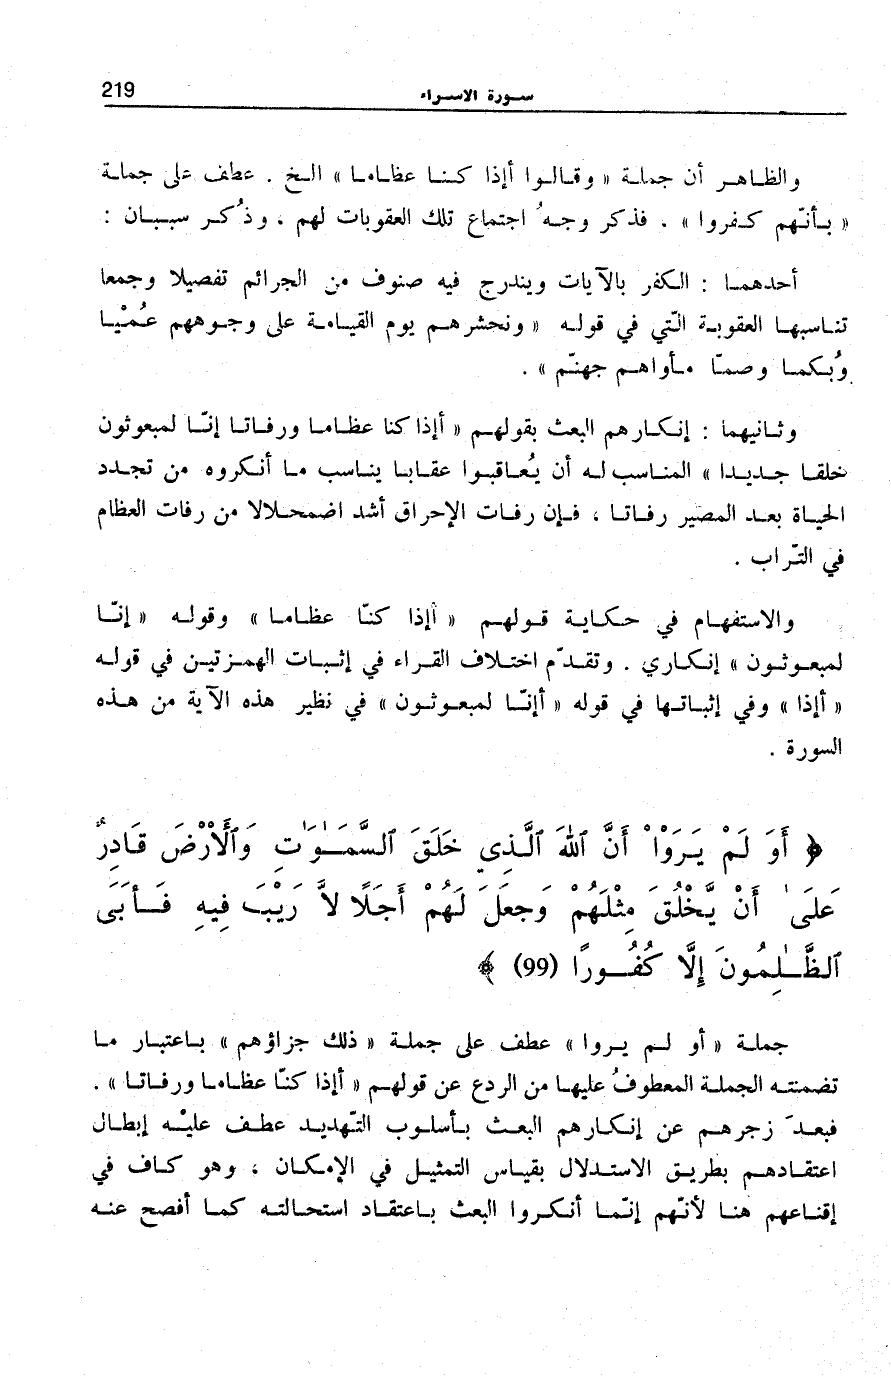 219
سورة الاسراء
والظاهر أن جملة « وقالوا أإذا كنا عظاما » الخ . عطف على جملة
« بأنّهم كفروا » . فذكر وجهُ اجتماع تلك العقوبات لهم ، وذُكر سببان :
أحدهما : الكفر بالآيات ويندرج فيه صنوف من الجرائم تفصيلا وجمعا
تناسبها العقوبة الّتي في قوله « ونحشرهم يوم القيامة على وجوههم عُمْيا
وبُكما وصمّا مأواهم جهنّم » .
وثانيهما : إنكارهم البعث بقولهم « أإذا كنا عظاما ورفاتا إنّا لمبعوثون
خلقا جديدا » المناسب له أن يُعاقبوا عقابا يناسب ما أنكروه من تجدد
الحياة بعد المصير رفاتا ، فإن رفات الإحراق أشد اضمحلالا من رفات العظام
في التّراب .
والاستفهام في حكاية قولهم « أإذا كنّا عظاما » وقوله « إنّا
لمبعوثون » إنكاري . وتقدّم اختلاف القراء في إثبات الهمزتين في قوله
« أإذا » وفي إثباتها في قوله « أإنّا لمبعوثون » في نظير هذه الآية من هذه
السورة .
﴿ أَوَ لَمْ يَرَوْاْ أَنَّ ٱللَّهَ ٱلَّذِي خَلَقَ ٱلسَّمَـٰوَٰتِ وَٱلْأَرْضَ قَادِرٌ
عَلَىٰ أَنْ يَّخْلُقَ مِثْلَهُمْ وَجَعَلَ لَهُمْ أَجَلًا لاَّ رَيْبَ فِيهِ فَأَبَى
ٱلظَّـٰلِمُونَ إِلَّا كُفُورًا (99) ﴾
جملة « أو لم يروا » عطف على جملة « ذلك جزاؤهم » باعتبار ما
تضمنته الجملة المعطوفُ عليها من الردع عن قولهم « أإذا كنّا عظاما ورفاتا » .
فبعدَ زجرهم عن إنكارهم البعث بأسلوب التّهديد عطف عليْه إبطال
اعتقادهم بطريق الاستدلال بقياس التمثيل في الإمكان ، وهو كاف في
إقناعهم هنا لأنّهم إنّما أنكروا البعث باعتقاد استحالته كما أفصح عنه